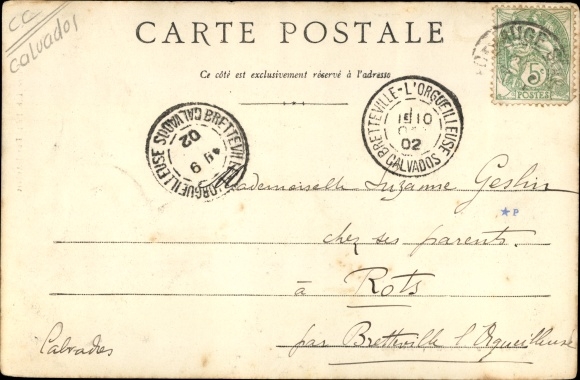 CC
Calvados
CARTE POSTALE
Ce côté est exclusivement réservé à l'adresse
5c
POSTES
BRETTEVILLE-L'ORGUEILLEUSE
15 10
02
CALVADOS
BRETTEVILLE-L'ORGUEILLEUSE CALVADOS
02
Mademoiselle Suzanne Geslin
★P
chez ses parents.
à Rots
par Bretteville l'Orgueilleuse
Calvados